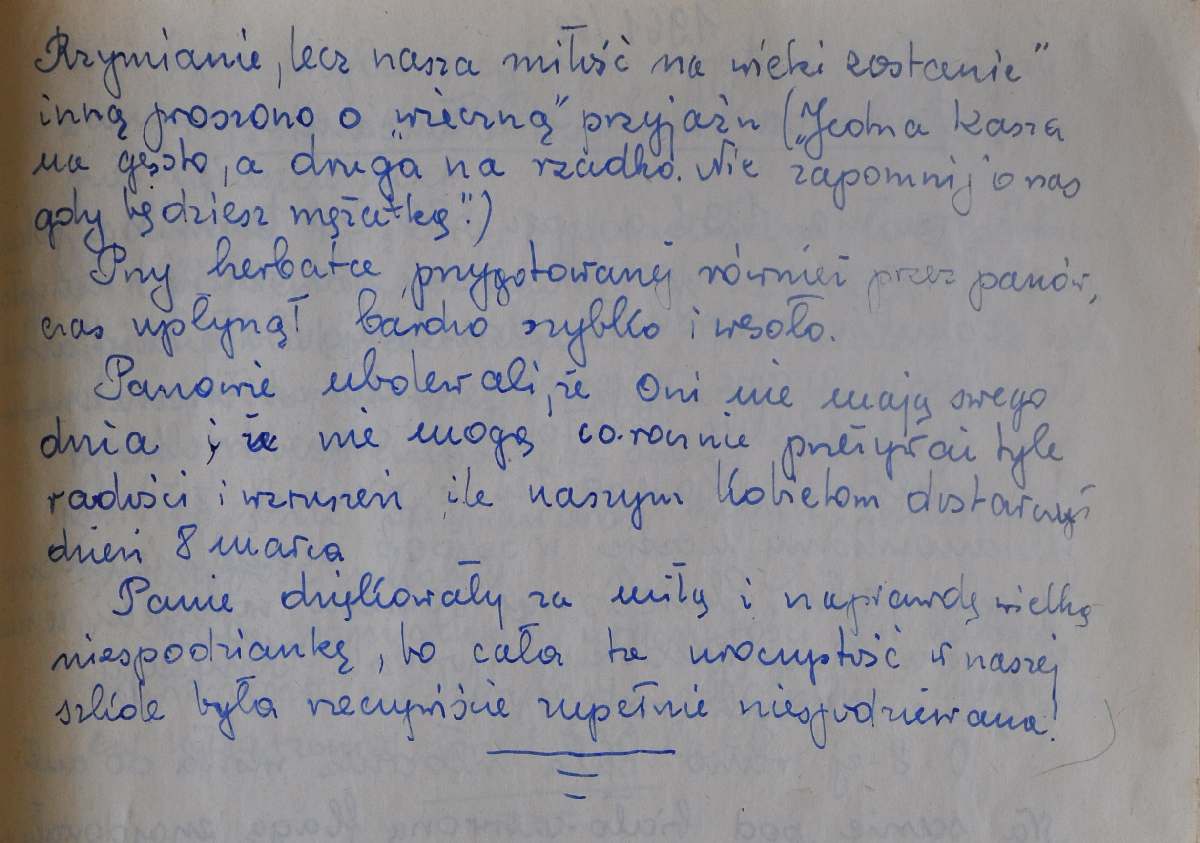 Rzymianie, lecz nasza miłość na wieki zostanie"
inną proszono o „wieczną" przyjaźń („Jedna kasza
na gęsto, a druga na rzadko. Nie zapomnij o nas
gdy będziesz mężatką".)
Przy herbatce, przygotowanej również przez panów,
czas upłynął bardzo szybko i wesoło.
Panowie ubolewali, że Oni nie mają swego
dnia i że nie mogą co-rocznie przeżywać tyle
radości i wzruszeń ile naszym Kobietom dostarczył
dzień 8 marca
Panie dziękowały za miłą i naprawdę wielką
niespodziankę, bo cała ta uroczystość w naszej
szkole była rzeczywiście zupełnie niespodziewana!